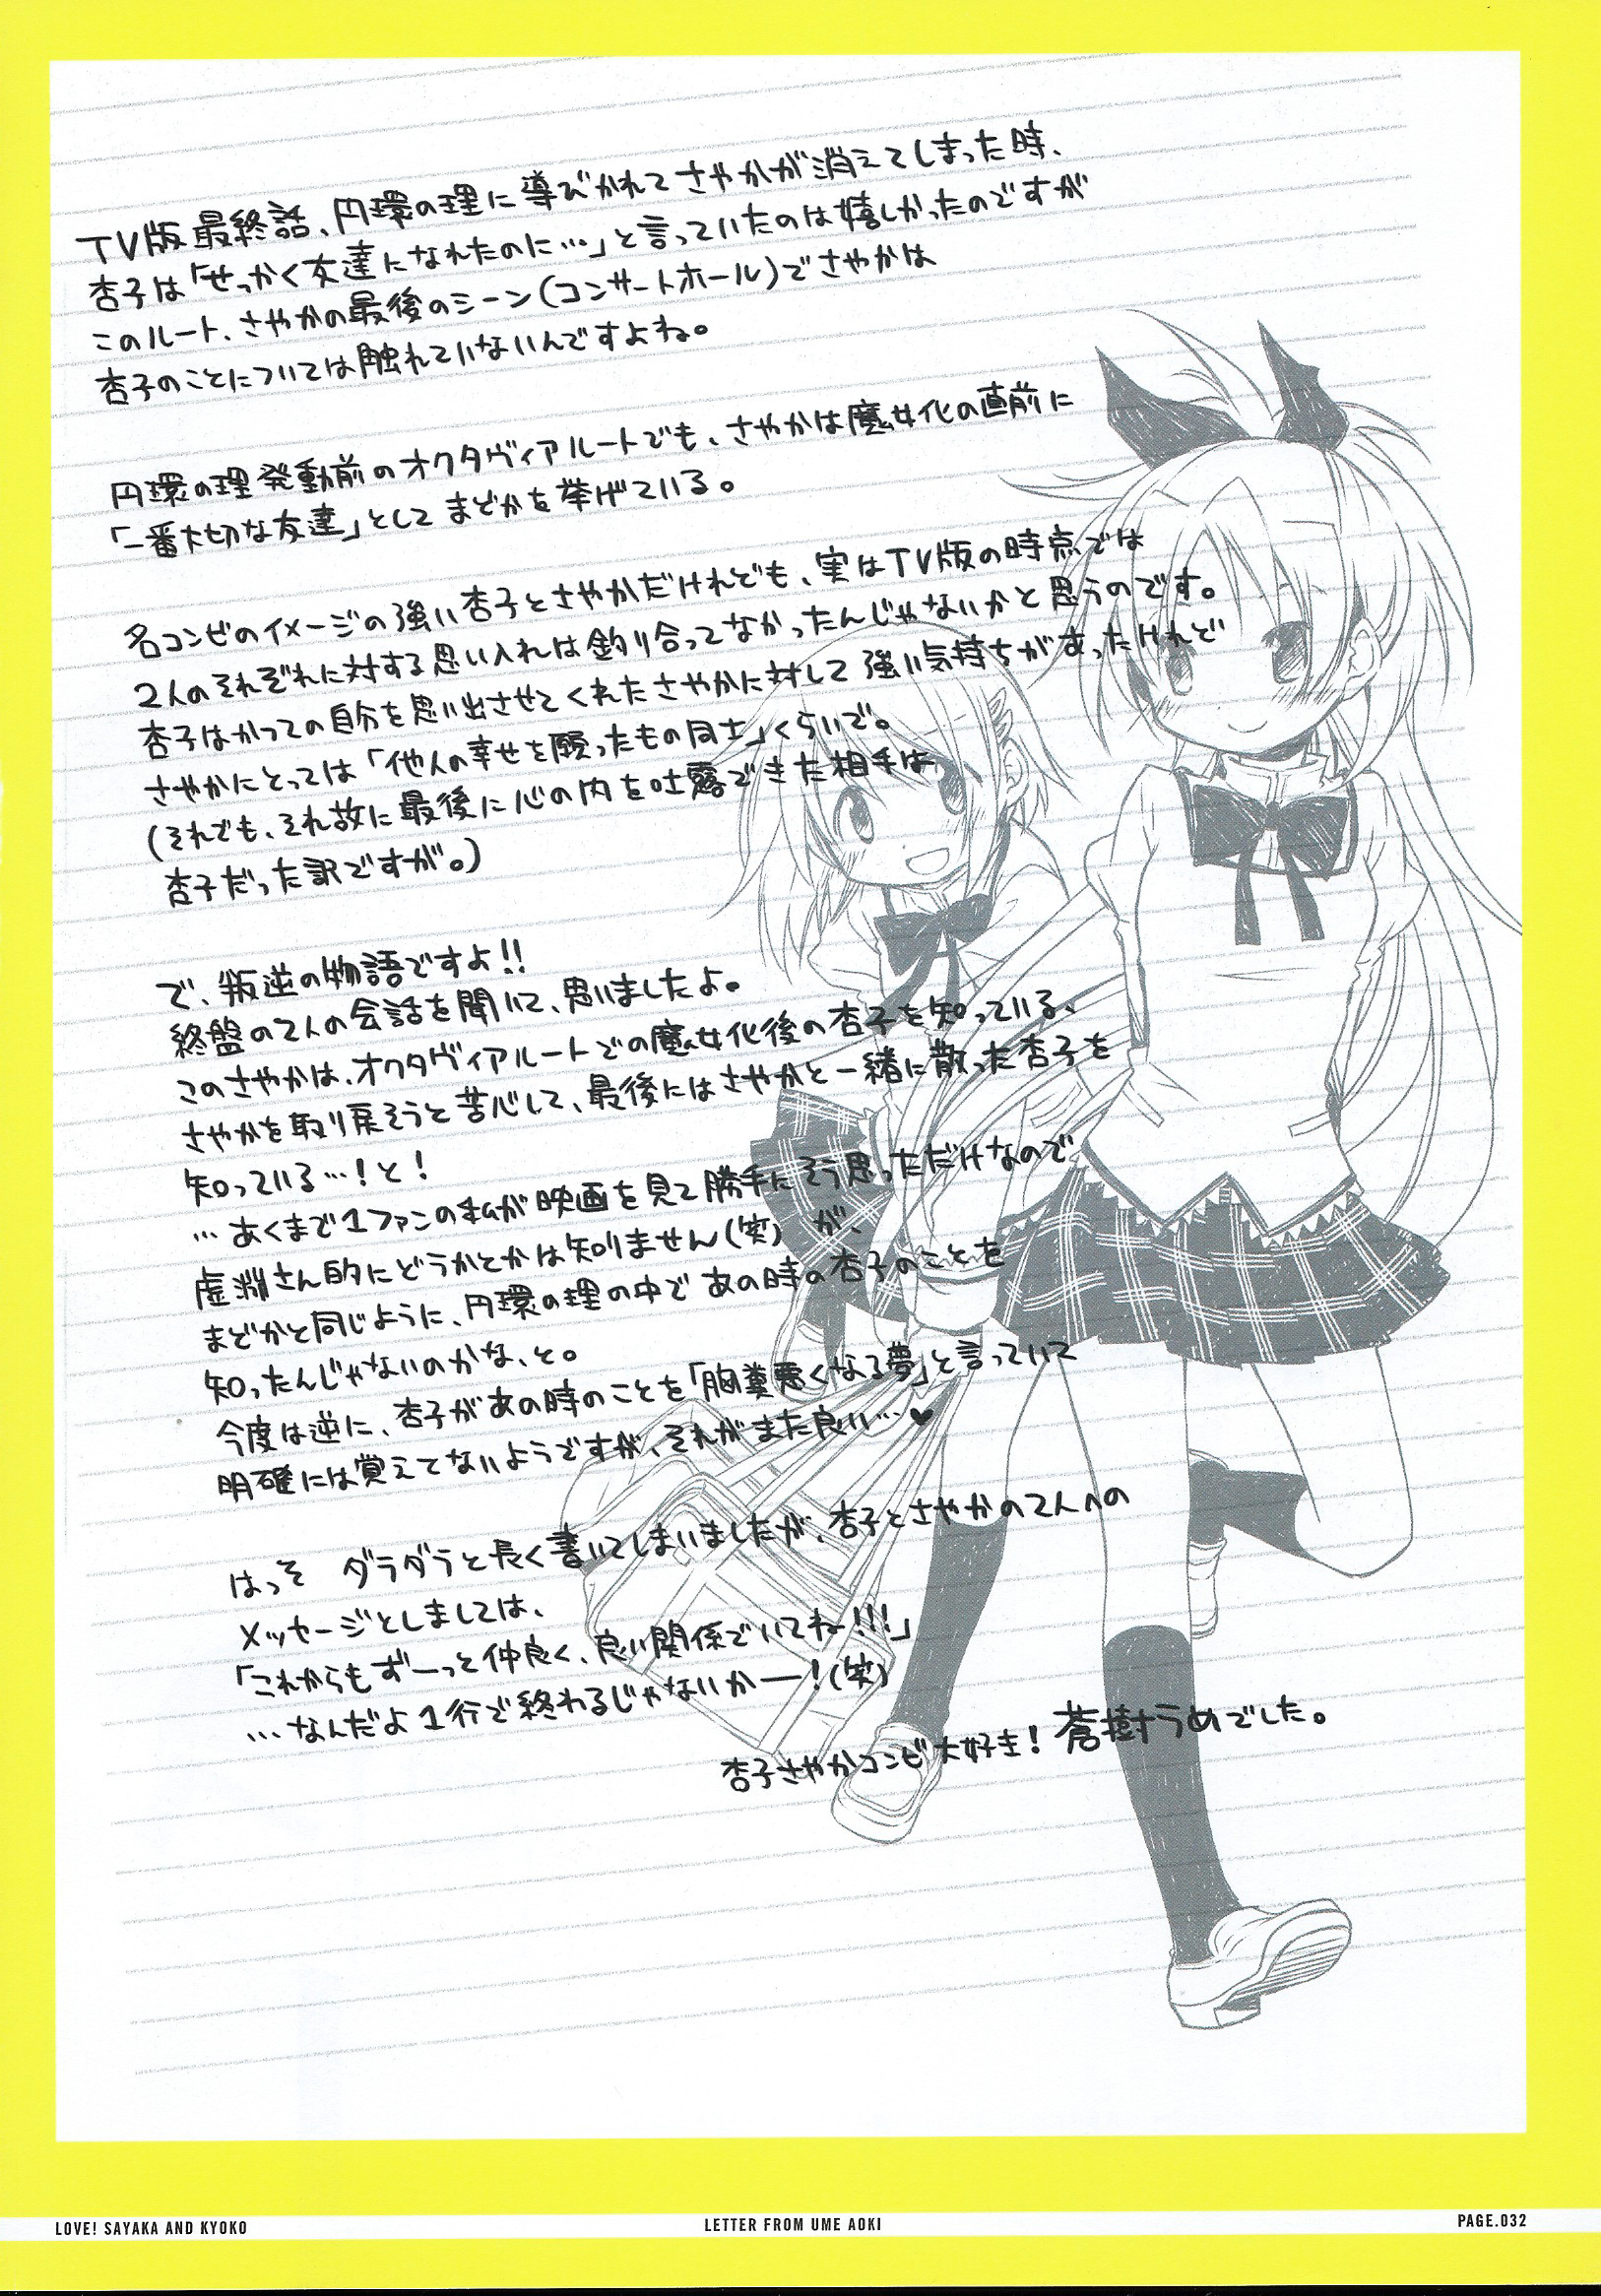 TV版最終話、円環の理に導びかれてさやかが消えてしまった時、
杏子は「せっかく友達になれたのに…」と言っていたのは嬉しかったのですが
このルート、さやかの最後のシーン(コンサートホール)でさやかは
杏子のことについては触れていないんですよね。
円環の理発動前のオクタヴィアルートでも、さやかは魔女化の直前に
「一番大切な友達」としてまどかを挙げている。
名コンビのイメージの強い杏子とさやかだけれども、実はTV版の時点では
2人のそれぞれに対する思い入れは釣り合ってなかったんじゃないかと思うのです。
杏子はかつての自分を思い出させてくれたさやかに対して強い気持ちがあったけれど
さやかにとっては「他人の幸せを願ったもの同士」くらいで。
(それでも、それ故に最後に心の内を吐露できた相手は
杏子だった訳ですが。)
で、叛逆の物語ですよ!!
終盤の2人の会話を聞いて、思いましたよ。
このさやかは、オクタヴィアルートでの魔女化後の杏子を知っている、
さやかを取り戻そうと苦心して、最後にはさやかと一緒に散った杏子を
知っている…!と!
…あくまで1ファンの私が映画を見て勝手にそう思っただけなので
虚淵さん的にどうかとかは知りません(笑)が、
まどかと同じように、円環の理の中であの時の杏子のことを
知ったんじゃないのかな、と。
今度は逆に、杏子があの時のことを「胸糞悪くなる夢」と言っていて
明確には覚えてないようですが、それがまた良い…♥
はっそ ダラダラと長く書いてしまいましたが、杏子とさやかの2人への
メッセージとしましては、
「これからもずーっと仲良く、良い関係でいてね!!!」
…なんだよ1行で終わるじゃないかー!(笑)
杏子さやかコンビ大好き! 蒼樹うめでした。
LOVE! SAYAKA AND KYOKO
LETTER FROM UME AOKI
PAGE.032